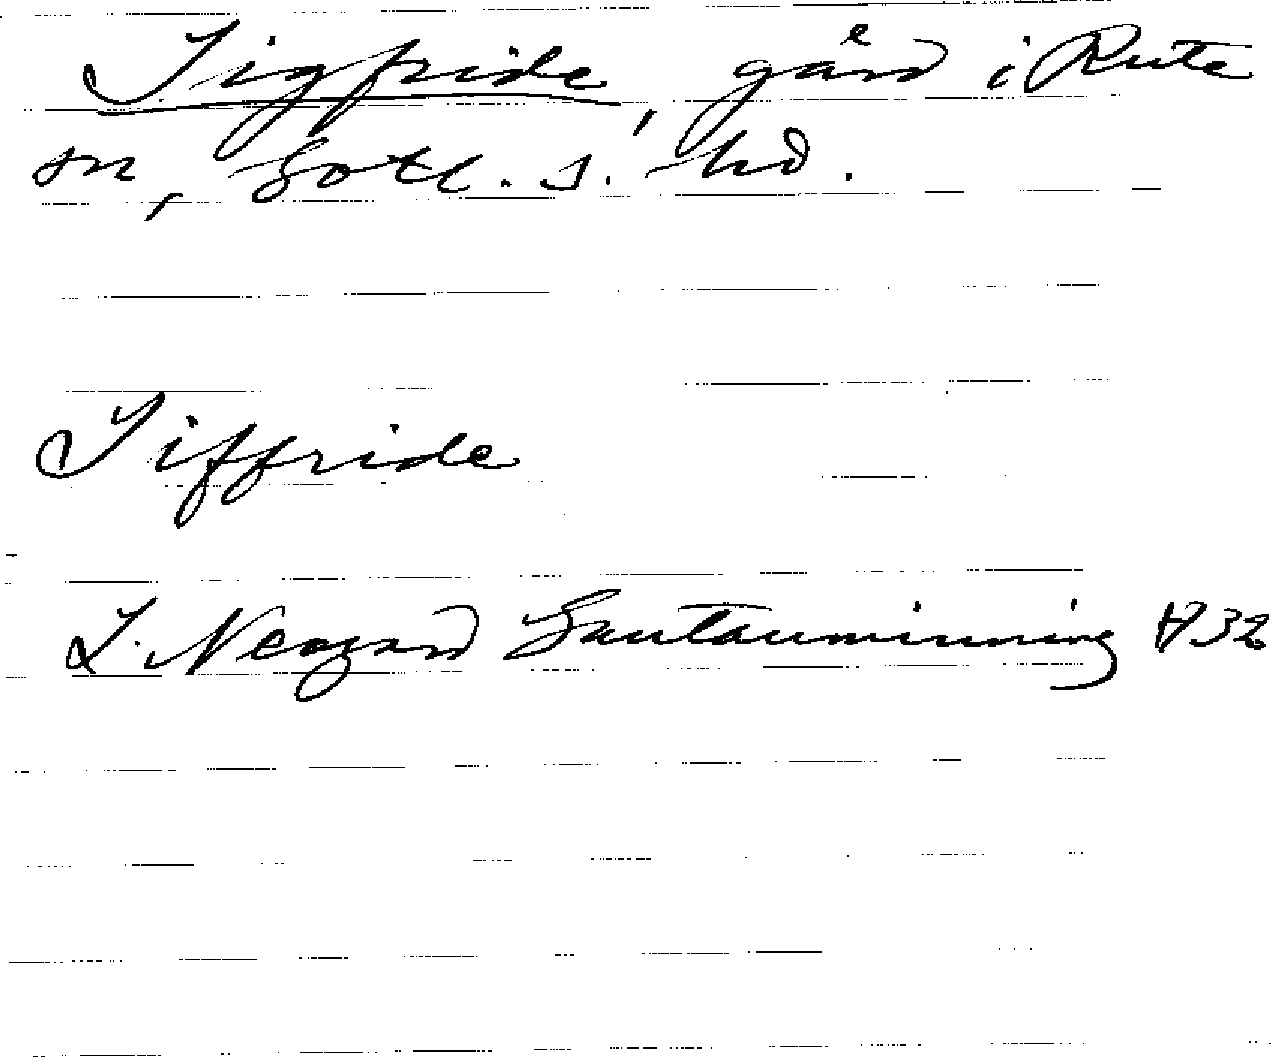 Sigfride, gård i Rute
sn, Gotl. s. hd.
Siffride
L. Neogard Gautauminning 1732